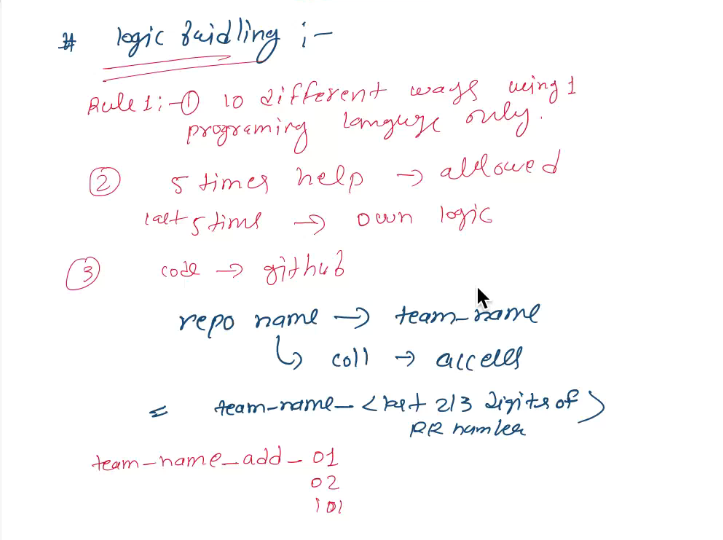 # logic buidling :-
Rule 1:- ① 10 different ways using 1
programing language only.
② 5 times help → allowed
last 5 time → own logic
③ code → github
repo name → team_name
↳ coll → access
= team-name_<last 2/3 digits of>
RR number
team-name_add_01
02
101